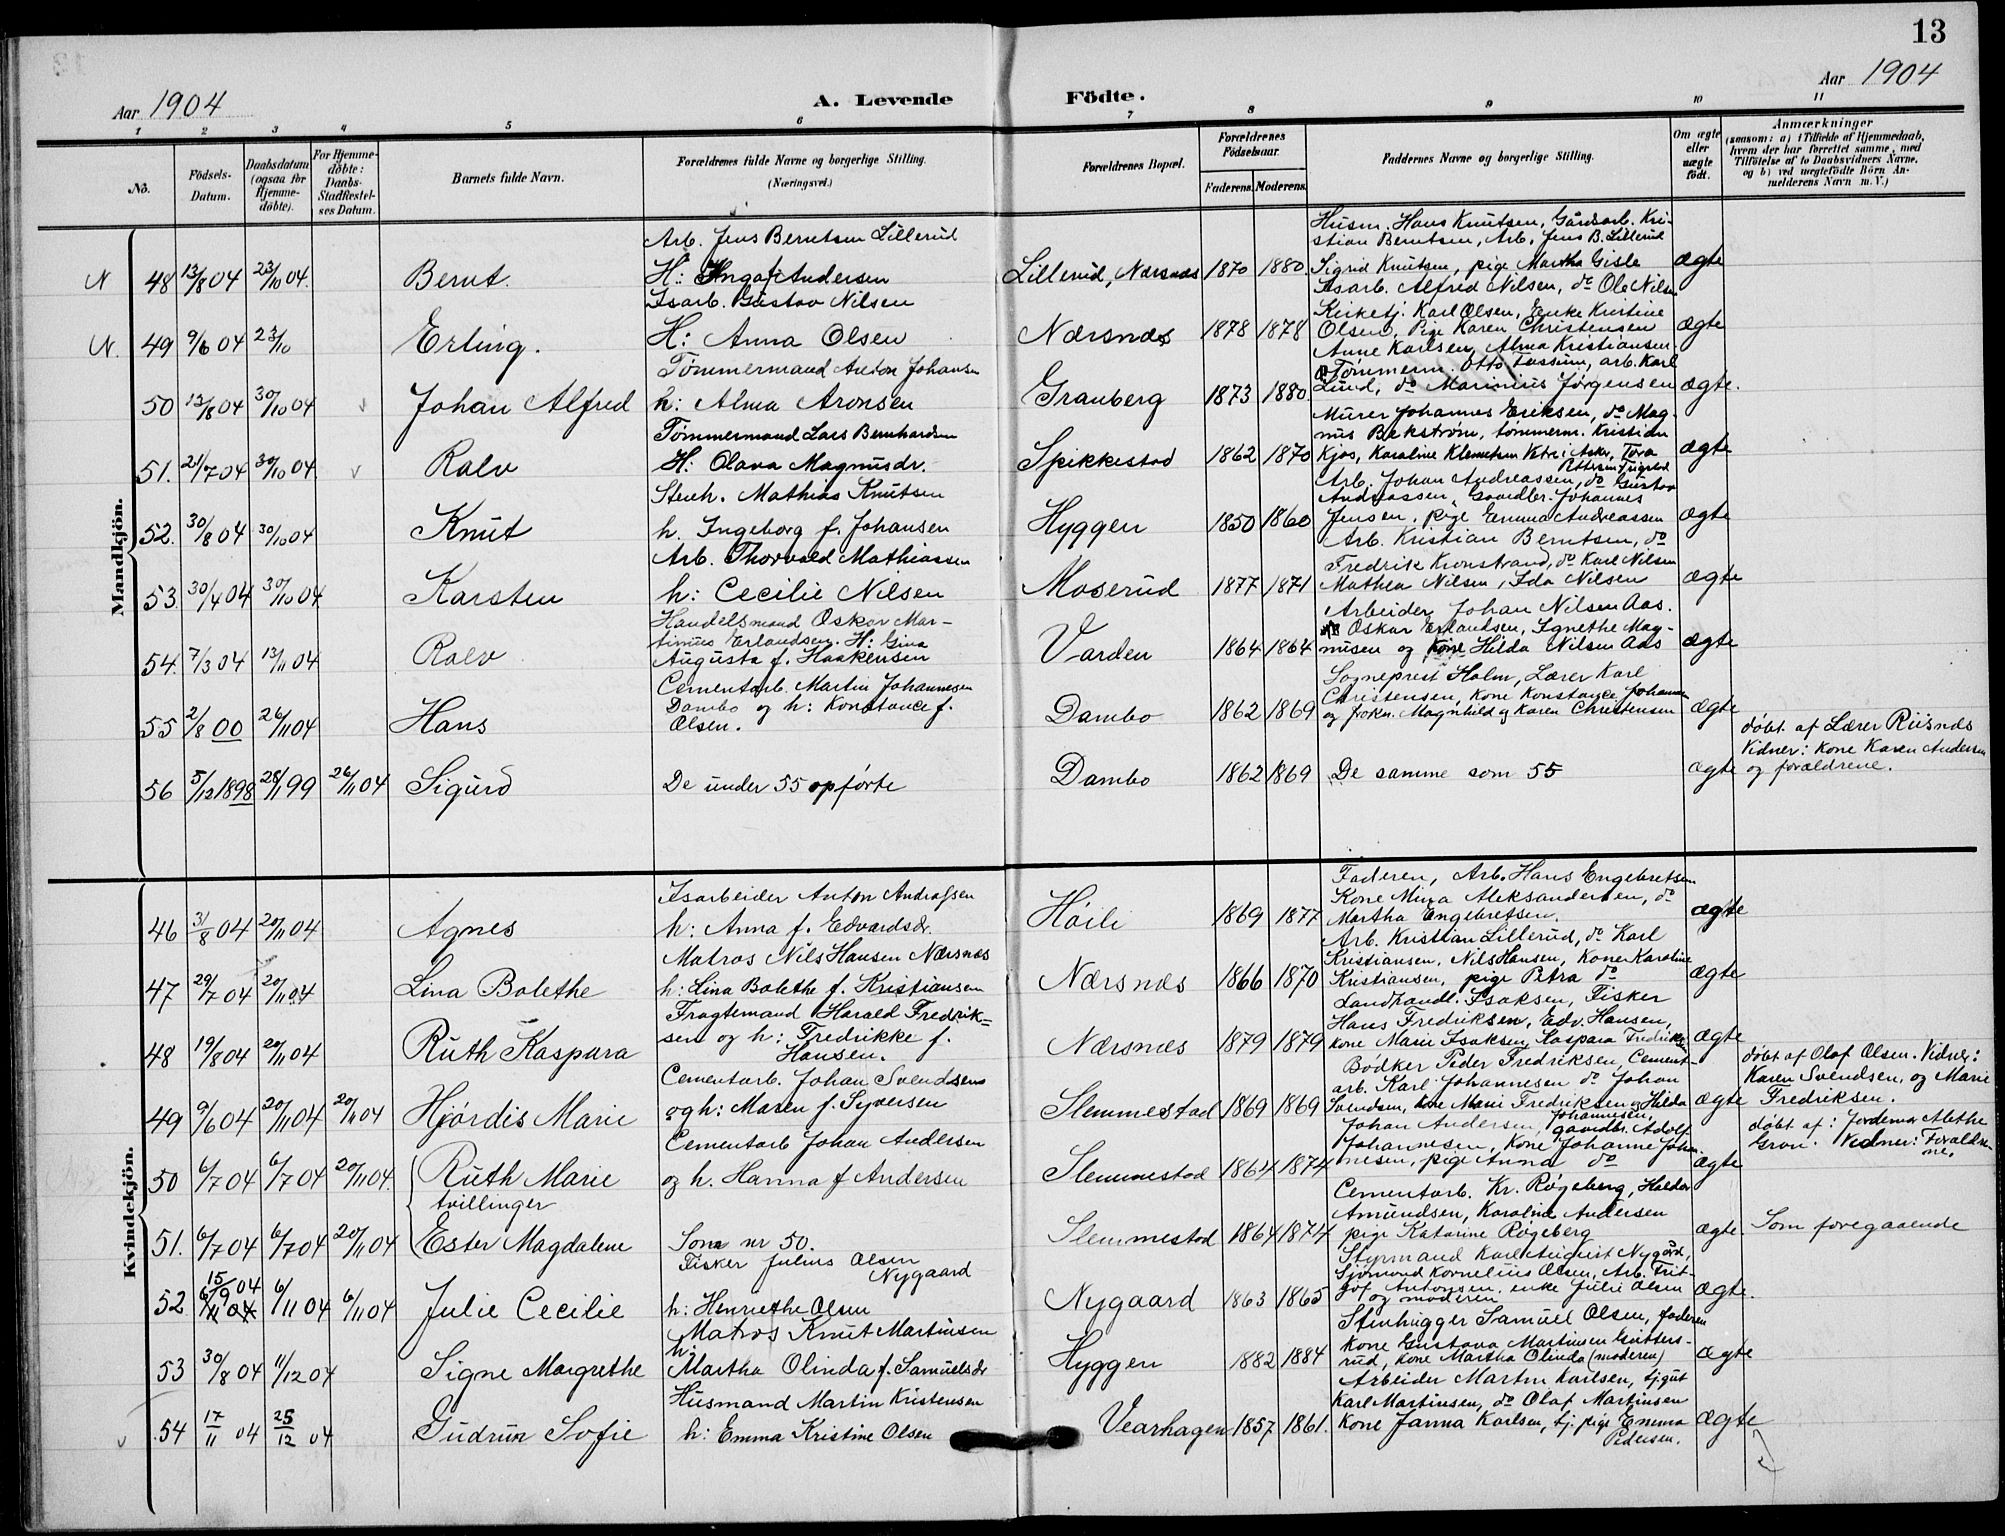 13
Aar 1904
A. Levende Födte.
Aar 1904
1 2 3 4 5 6 7 8 9 10 11
No.
Födsels-Datum.
Daabsdatum (ogsaa for Hjemme-döbte).
For Hjemme-döbte: Daabs-Stadfæstel-ses Datum.
Barnets fulde Navn.
Forældrenes fulde Navne og borgerlige Stilling. (Næringsvei.)
Forældrenes Bopæl.
Forældrenes Födselsaar. Faderens. Moderens.
Faddernes Navne og borgerlige Stilling.
Om ægte eller uægte födt.
Anmærkninger (saasom: a) i Tilfælde af Hjemmedaab, hvem der har forrettet samme, med Tilföielse af to Daabsvidners Navne, og b) ved uægtefödte Börn An-melderens Navn m. V.)
Mandkjön.
N 48 13/8 04 23/10 04. Bernt. Arb. Jens Berntsen Lillerud H: Inga f. Andersen Lillerud, Nærsnæs 1870 1880 Husm. Hans Knutsen, Gårdarb. Kri-stian Berntsen, Arb. Jens B. Lillerud Sigrid Knutsen, pige Martha Gisle ægte
N. 49 9/6 04 23/10 Erling. Isarb. Gustav Nilsen H: Anna Olsen Nærsnæs 1878 1878 Isarb. Alfred Nilsen, do Ole Nilsen Kirketj. Karl Olsen, Enke Kristine Olsen, Pige Karen Christensen ægte
50 13/8 04 30/10 04 Johan Alfred Tömmermand Anton Johansen h: Alma Aronsen Granberg 1873 1880 Anne Karlsen, Alma Kristiansen. Tömmerm. Otto Fossum, arb. Karl Lund, do Marinius Jørgensen ægte.
51. 21/7 04 30/10 04. Ralv Tömmermand Lars Bernhardsen H: Olava Magnusdr. Spikkestad 1862 1870 Murer Johannes Eriksen, do Mag-nus Bekström, tömmerm. Kristian Kjos, Karoline Klemetsen Vetre i Asker, Tora Pettersen ægte
52. 30/8 04 30/10 04 Knut Stenh. Mathias Knutsen h. Ingeborg f. Johansen Hyggen 1850 1860 Arb. Johan Andreassen, do Gustav Andreassen, Johannes Jensen, pige Emma Andreassen ægte
53. 30/4 04 30/10 04 Karsten Arb. Thorvald Mathiassen h: Cecilie Nilsen Moserud 1877 1871 Arb. Kristian Berntsen, do Fredrik Kronstrand, do Karl Nilsen Mathea Nilsen, Ida Nilsen ægte
54. 7/3 04 13/11 04 Ralv Handelsmand Oskar Mar-tinus Erlandsen. H: Gina Augusta f. Haakensen Varden 1864 1864 Arbeider Johan Nilsen Aas. Oskar Erlandsen, Agnethe Mag-nusen og kone Hilda Nilsen Aas ægte
55 2/8 00 26/11 04 Hans Cementarb. Martin Johannesen Dambo og h: Konstance f. Olsen. Dambo 1862 1869 Sogneprest Holm, Lærer Karl Christensen, Kone Konstance Johannesen og frøkn. Magnhild og Karen Christensen ægte
56 5/12 1898 28/11 99 26/11 04 Sigurd De under 55 opførte Dambo 1862 1869 De samme som 55 ægte døbt af Lærer Riisnæs Vidner: Kone Karen Andersen og forældrene.
Kvindekjön.
46 31/8 04 20/11 04 Agnes Isarbeider Anton Andrassen h: Anna f. Edvardsdr. Höili 1869 1877 Faderen, Arb. Hans Engebretsen Kone Mina Aleksandersen, do Martha Engebretsen. ægte
47 29/7 04 20/11 04 Lina Bolethe Matros Nils Hansen Nærsnæs h: Lina Bolethe f. Kristiansen Nærsnæs 1866 1870 Arb. Kristian Lillerud, do Karl Kristiansen, Nils Hansen, Kone Karoline Kristiansen, pige Petra do ægte
48 19/8 04 20/11 04 Ruth Kaspara Fragtemand Harald Fredrik-sen og h: Fredrikke f. Hansen. Nærsnæs 1879 1879 Landhandl. Isaksen, Fisker Hans Fredriksen, Edv. Hansen, kone Marie Isaksen, Kaspara Fredriksen ægte
49 9/6 04 20/11 04 20/11 04 Hjördis Marie Cementarb. Johan Svendsen og h: Maren f. Syversen Slemmestad 1869 1869 Bödker Peder Fredriksen, Cement-arb. Karl Johannesen do Johan Svendsen, kone Marie Fredriksen og Hilda Johannesen, ægte døbt af Olaf Olsen. Vidner: Karen Svendsen, og Marie Fredriksen.
50 6/7 04 6/7 04 20/11 04. Ruth Marie tvillinger Cementarb Johan Andersen og h. Hanna f Andersen Slemmestad 1864 1874 Johan Andersen, gaardbr. Adolf Johannesen, Kone Johanne Johan-nesen, pige Anna do ægte døbt af: Jordemor Methe Gron. Vidner: Foræld-rene.
51. 6/7 04 6/7 04 20/11 04 Ester Magdalene Som nr 50. Slemmestad 1864 1874 Cementarb. Kr. Røgeberg, Haldor Amundsen, Karoline Andersen pige Katarine Røgeberg ægte. Som foregaaende
52 15/9 04 6/11 04 6/11 04 6/11 04 Julie Cecilie Fisker Julius Olsen Nygaard h: Henriethe Olsen Nygaard 1863 1865 Styrmand Karl August Nygård, Sjömand Kornelius Olsen, Arb. Frit-jof Antonsen, enke Julie Olsen og moderen ægte.
53 30/8 04 11/12 04 Signe Margrethe Matros Knut Martinsen h: Martha Olinda f. Samuelsdr Hyggen 1882 1884 Stenhugger Samuel Olsen, faderen Kone Gustava Martinsen Gutters-rud, kone Martha Olinda (moderen) ægte
54 17/11 04 25/12 04 Gudrun Sofie Husmand Martin Kristensen h: Emma Kristine Olsen Vearhagen 1857 1861. Arbeider Martin Karlsen, tjgut Karl Martinsen, do Olaf Martinsen Kone Janna Karlsen, tj. pige Emma Pedersen. ægte